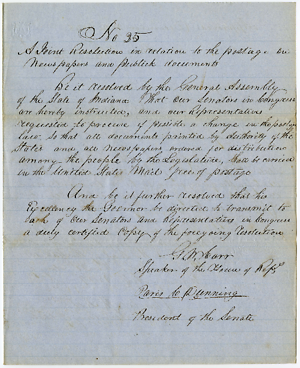 No 35
A Joint Resolution in relation to the postage on
Newspapers and Publick documents
Be it resolved by the General Assembly
of the State of Indiana That our Senators in Congress
are hereby instructed, and our Representatives
requested to procure if possible a change in the postage
laws, so that all documents printed by authority of the
States and, all Newspapers ordered for distribution
among the people by the Legislature, shall be carried
in the United States Mail free of postage
And be it further resolved that his
Excellency the Governor be directed to transmit to
each of our Senators and Representatives in Congress
a duly certified Copy of the foregoing resolution
Carr
Speaker of the House of Reps
Paris C Dunning
President of the Senate